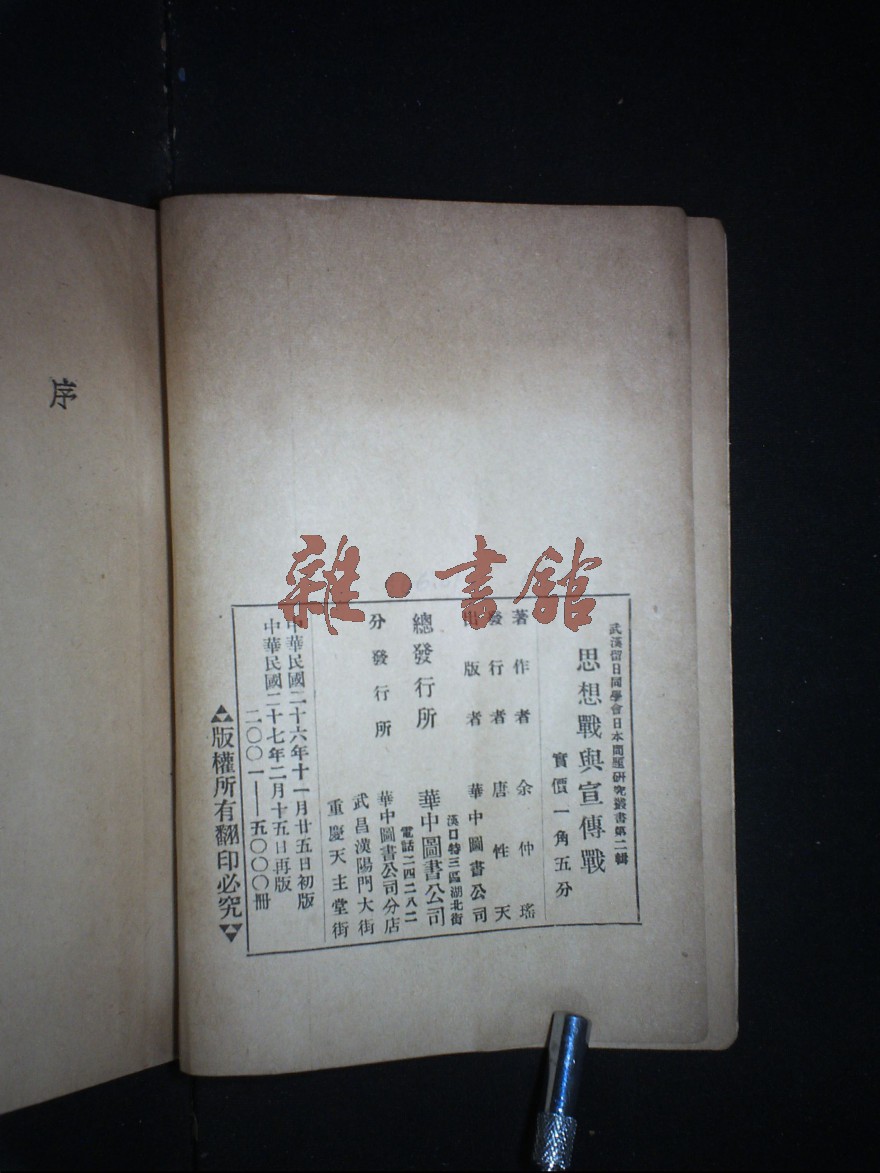 雜·書館
武漢留日同學會日本問題研究叢書第二輯
思想戰與宣傳戰
實價一角五分
著作者 余仲瑤
發行者 唐性天
出版者 華中圖書公司
漢口特三區湖北街
總發行所 華中圖書公司
電話二四二八二
分發行所 華中圖書公司分店
武昌漢陽門大街
重慶天主堂街
中華民國二十六年十一月廿五日初版
中華民國二十七年二月十五日再版
二〇〇一——五〇〇〇冊
版權所有翻印必究
序